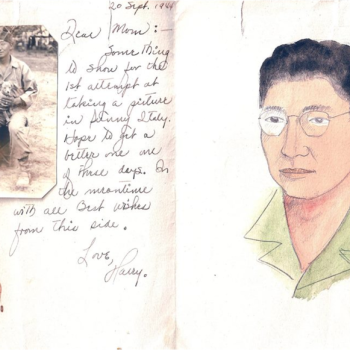 20 Sept. 1944
Dear Mom:—
Some thing
to show for the
1st attempt at
taking a picture
in Sunny Italy.
Hope to get a
better one one
of these days. In
the meantime
with all Best Wishes
from this side.
Love,
Harry.